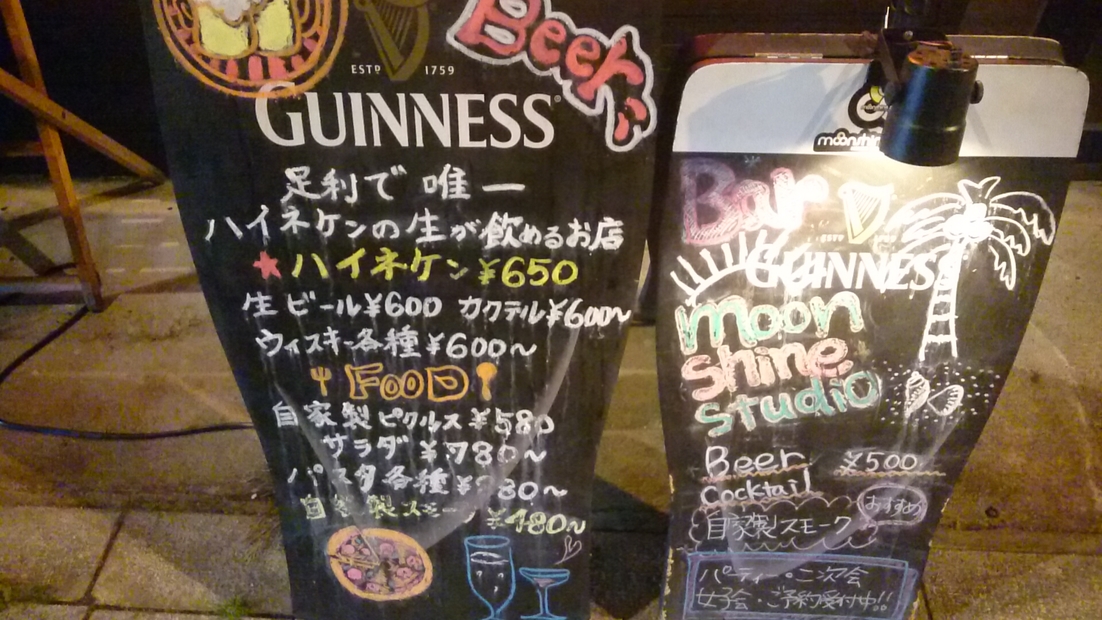 Beer
ESTD 1759
GUINNESS
足利で 唯一
ハイネケンの生が飲めるお店
★ハイネケン ¥650
生ビール¥600 カクテル¥600~
ウィスキー各種¥600~
FOOD
自家製ピクルス ¥580
サラダ ¥780~
パスタ各種
自家製スモーク ¥480~
Bar
GUINNESS
moon
shine
studio
Beer ¥500
Cocktail
おすすめ
自家製スモーク
パーティー・二次会
女子会・ご予約受付中!!